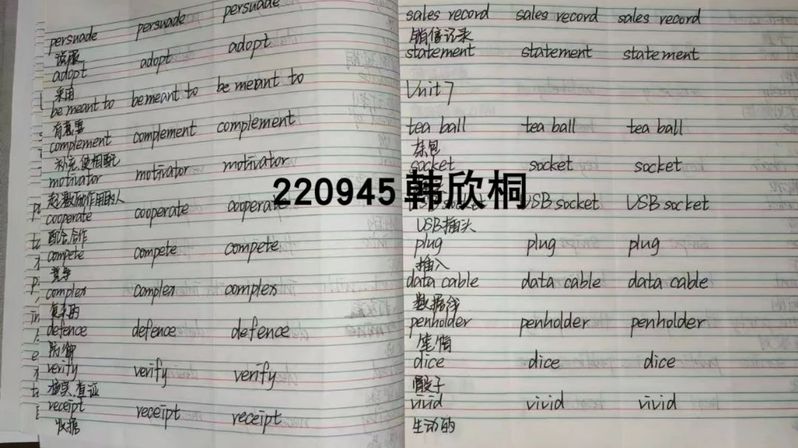 persuade persuade persuade
说服
adopt adopt adopt
采用
be meant to be meant to be meant to
有意要
complement complement complement
补充,使相配
motivator motivator motivator
起激励作用的人
cooperate cooperate cooperate
配合,合作
compete compete compete
竞争
complex complex complex
复杂的
defence defence defence
防御
verify verify verify
核实,查证
receipt receipt receipt
收据
sales record sales record sales record
销售记录
statement statement statement
Unit 7
tea ball tea ball tea ball
茶包
socket socket socket
USB socket USB socket
USB插头
plug plug plug
插入
data cable data cable data cable
数据线
penholder penholder penholder
笔筒
dice dice dice
骰子
vivid vivid vivid
生动的
220945韩欣桐